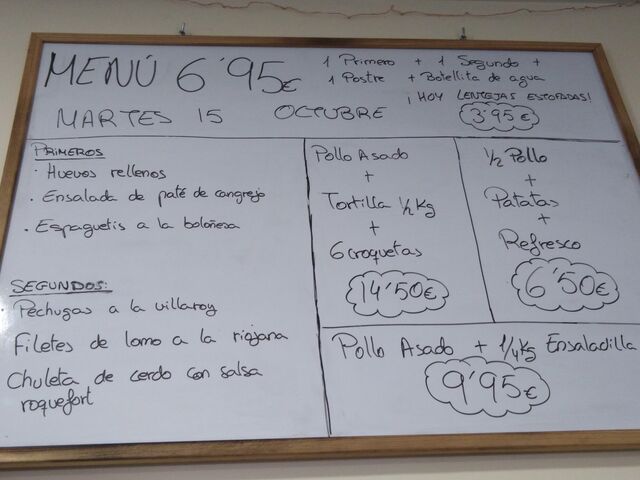 MENÚ 6'95€
1 Primero + 1 Segundo +
1 Postre + Botellita de agua
¡HOY LENTEJAS ESTOFADAS!
3'95€
MARTES 15 OCTUBRE
PRIMEROS
· Huevos rellenos
· Ensalada de paté de cangrejo
· Espaguetis a la boloñesa
SEGUNDOS:
· Pechugas a la villaroy
Filetes de lomo a la riojana
Chuleta de cerdo con salsa
roquefort
Pollo Asado
+
Tortilla 1/2 Kg
+
6 croquetas
14'50€
1/2 Pollo
+
Patatas
+
Refresco
6'50€
Pollo Asado + 1/4 Kg Ensaladilla
9'95€